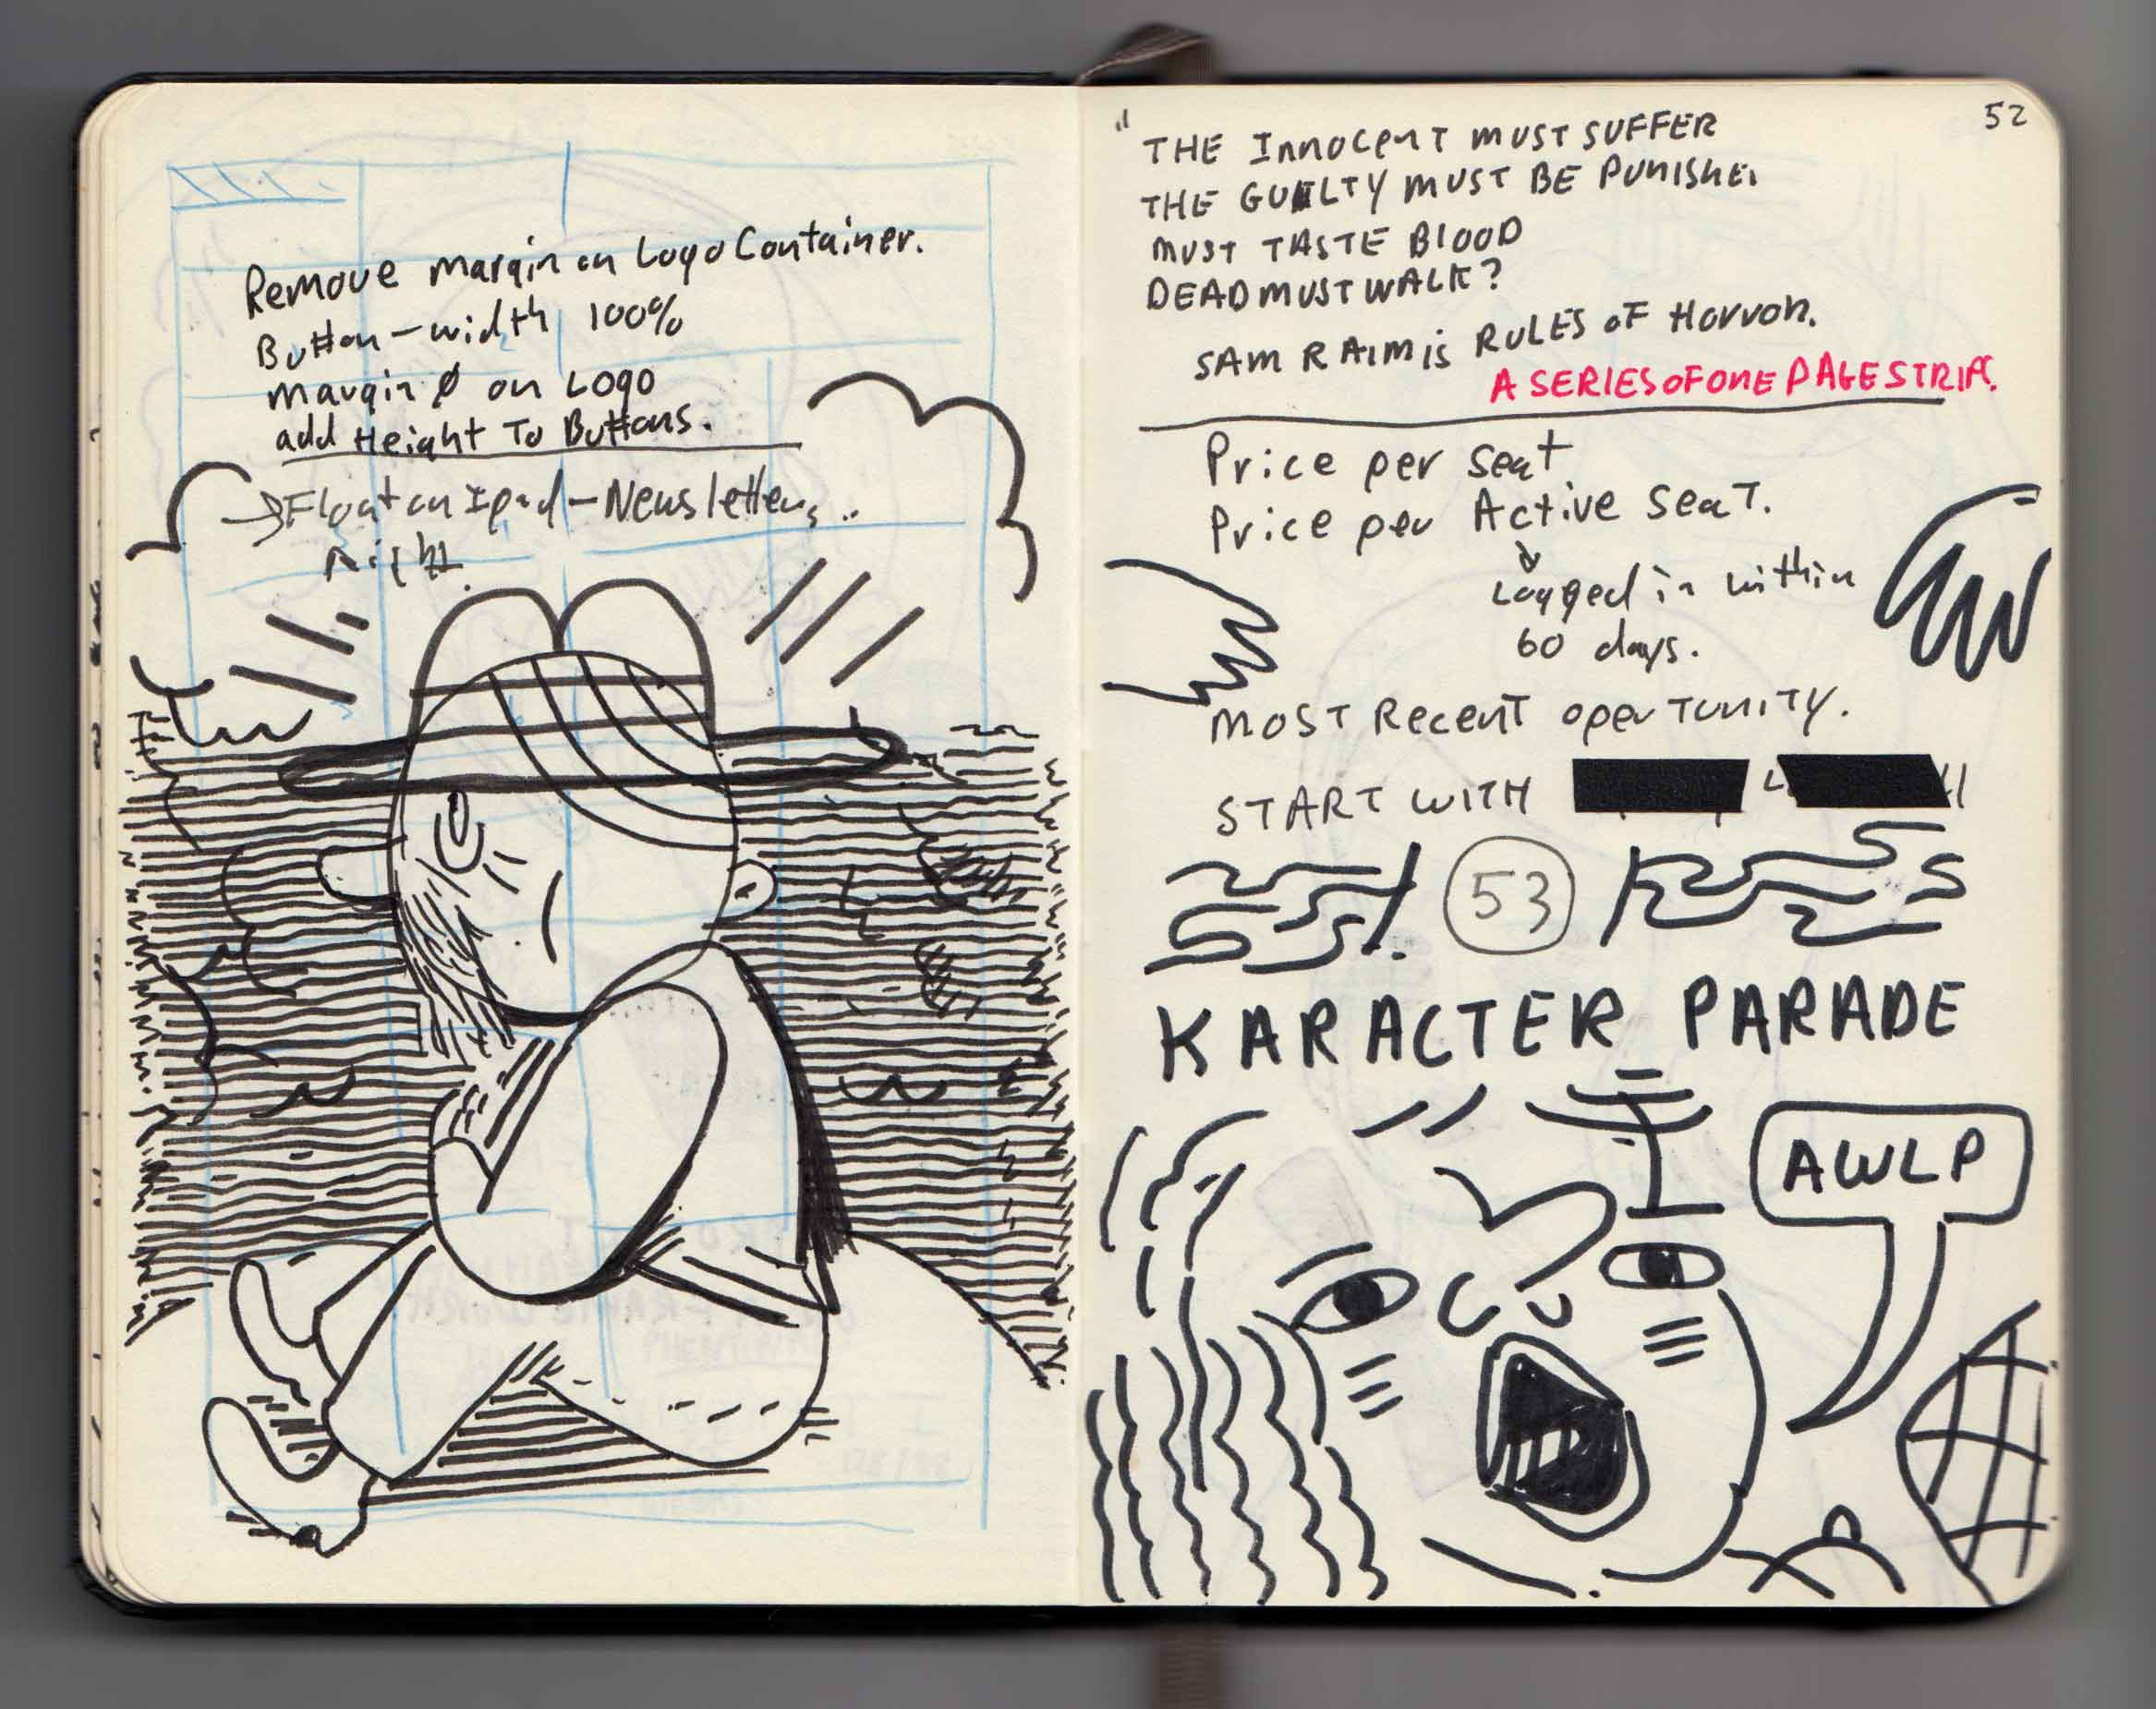 Remove margin on Logo Container.
Button-width 100%
margin 0 on Logo
add Height To Buttons.
→Float on Ipad-Newsletters..
Right.
52
"THE InnoCenT MUST SUFFER
THE GUILTY MUST BE PUNISHE
MUST TASTE BlOOD
DEAD MUST WALK?
SAM RAIMIs RULES OF HorroR.
A SERIES OF ONE PAGE STRIPS.
Price per seat
Price per Active seaT.
Logged in within
60 days.
MOST Recent operTunITY.
START WITH
53
KARACTER PARADE
AWLP